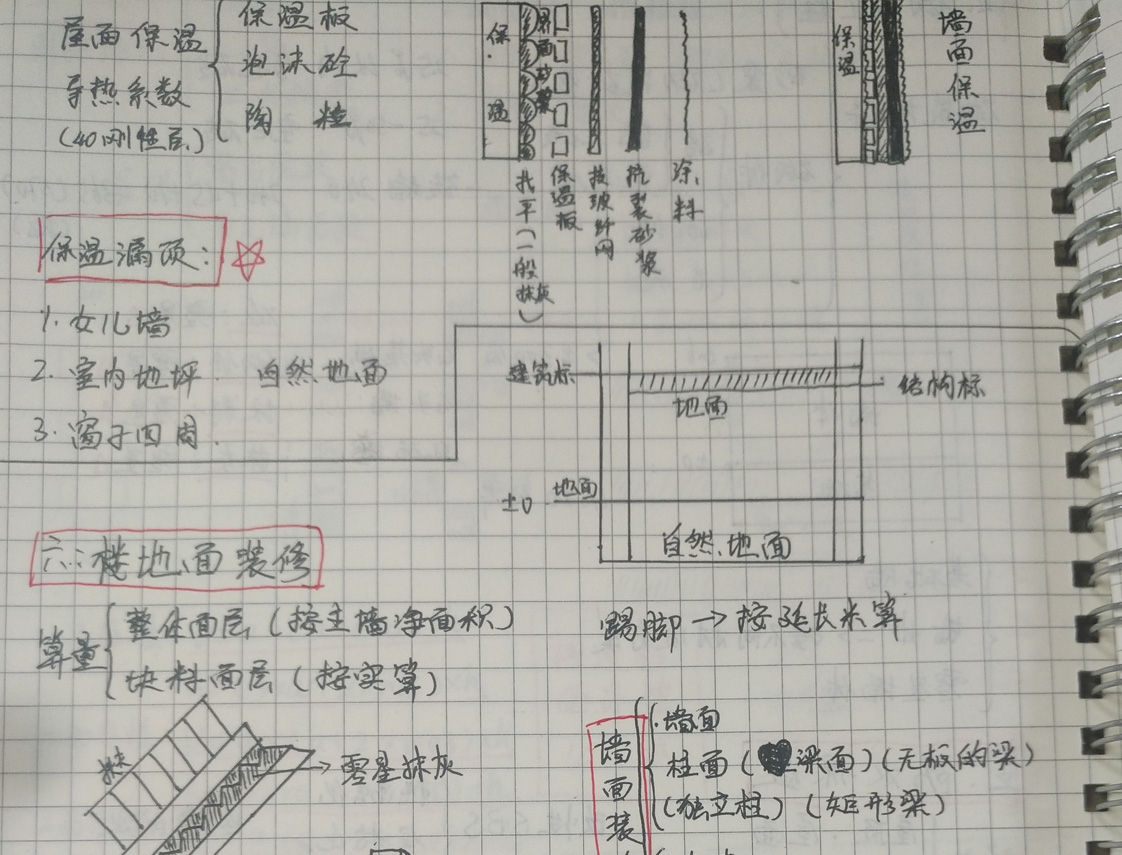 屋面保温
导热系数
(40刚性层)
保温板
泡沫砼
陶粒
保温
界面砂浆
找平(一般抹灰)
保温板
技玻纤网
抗裂砂浆
涂料
保温
墙面保温
保温漏项:
1. 女儿墙
2. 室内地坪. 自然地面
3. 窗子四周.
建筑标
地面
结构标
±0 地面
自然地面
六:楼地面装修
算量
整体面层(按主墙净面积)
块料面层(按实算)
踢脚→按延长米算
抹灰
零星抹灰
墙面装
·墙面
柱面(梁面)(无板的梁)
(独立柱)(矩形梁)